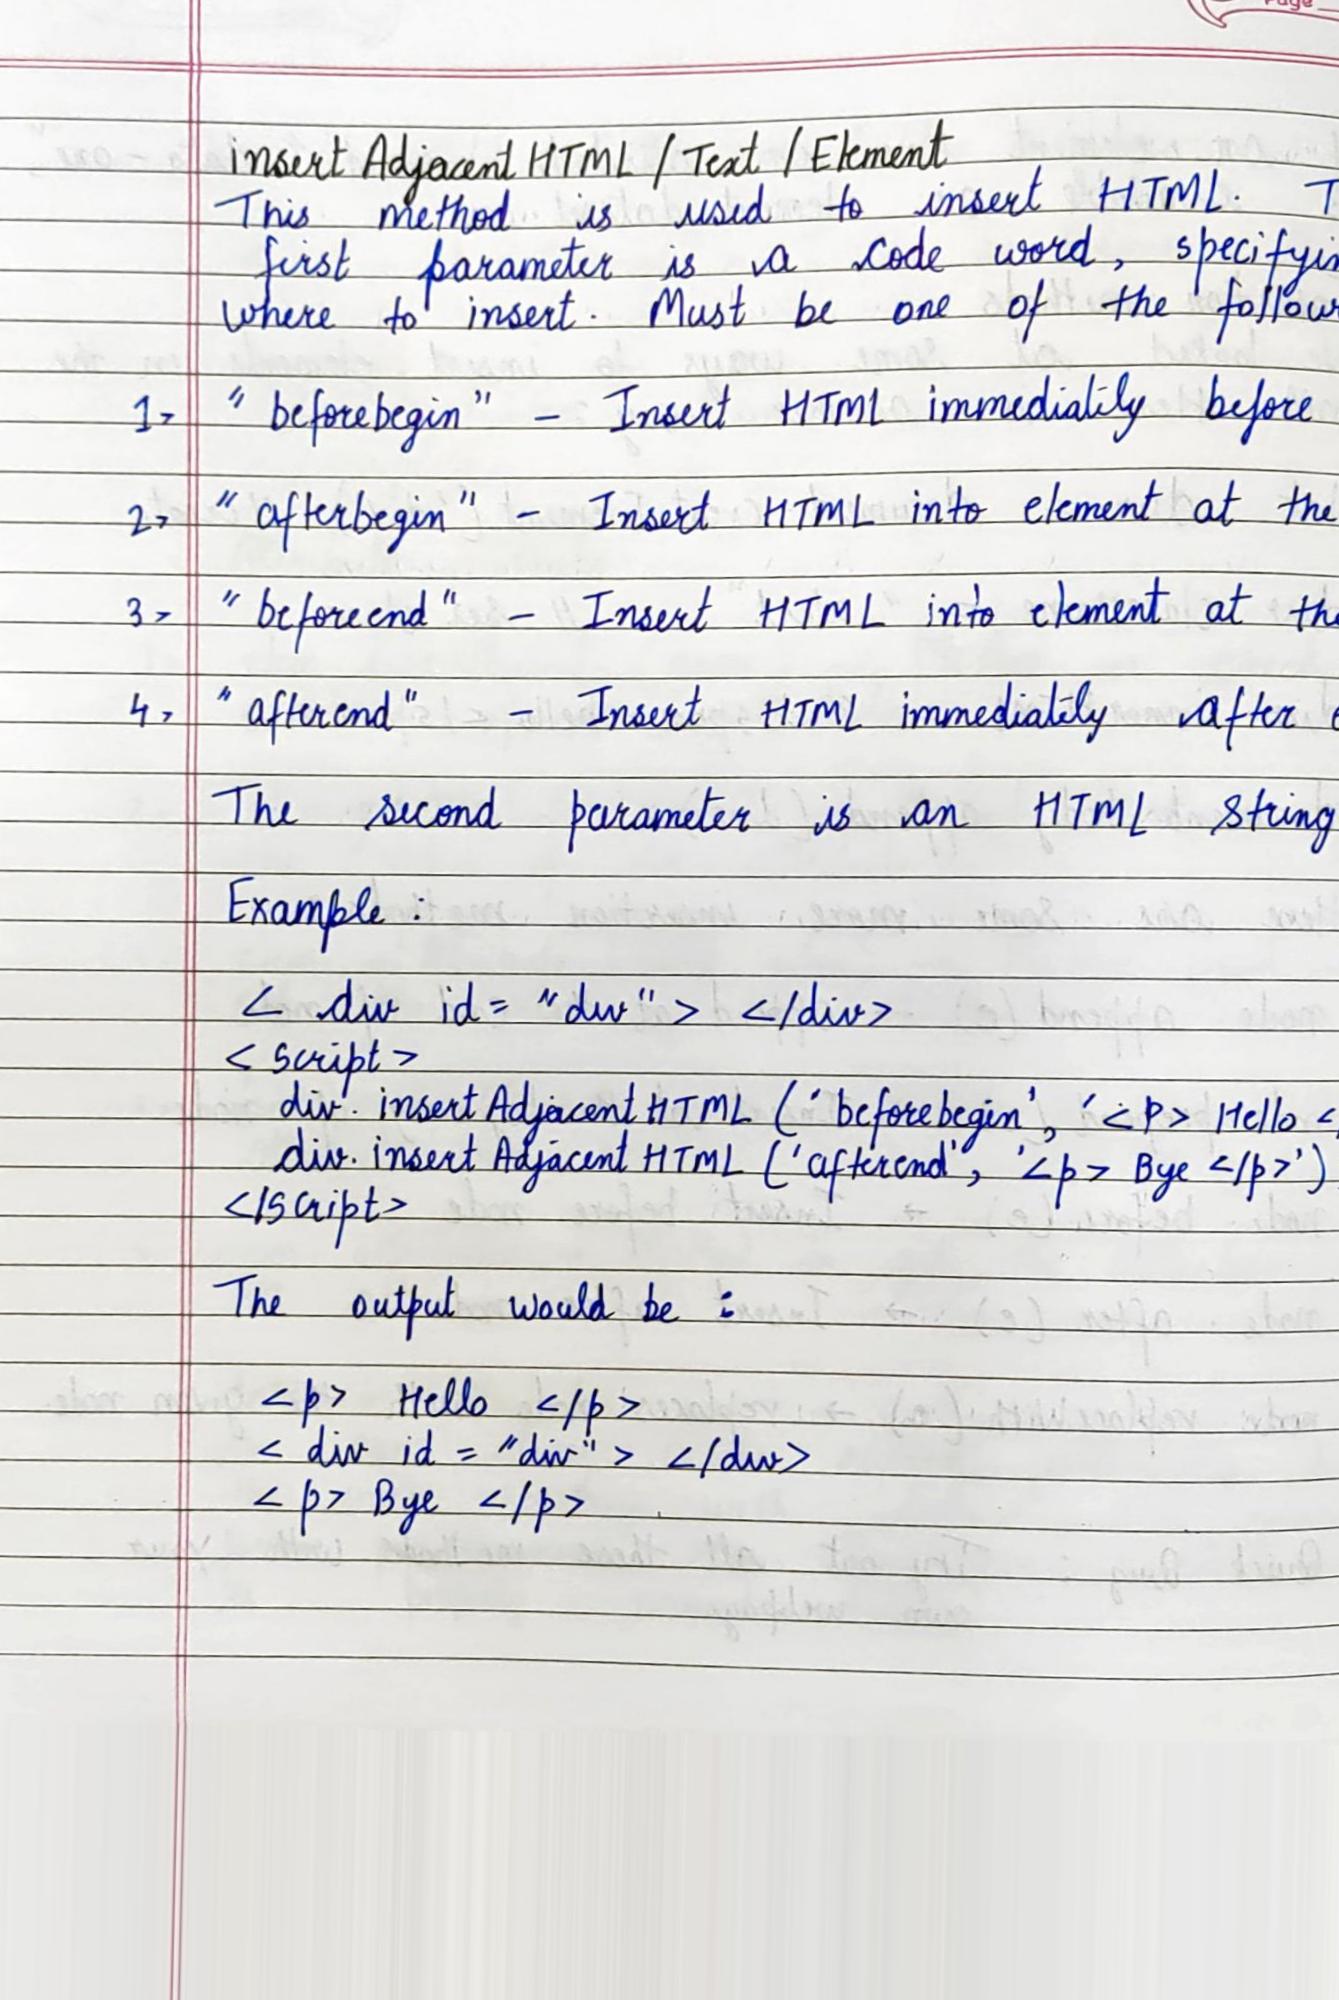 Page
insert Adjacent HTML / Text / Element
This method is used to insert HTML. T
first parameter is a code word, specifyin
where to insert. Must be one of the follow
1> "beforebegin" - Insert HTML immediatily before
2> "afterbegin" - Insert HTML into element at the
3> "beforeend" - Insert HTML into element at the
4> "afterend" - Insert HTML immediatily after e
The second parameter is an HTML string
Example :
< div id = "div" > </div>
< script >
div. insert Adjacent HTML ('beforebegin', '<p> Hello <
div. insert Adjacent HTML ('afterend', '<p> Bye </p>')
</script>
The output would be :
<p> Hello </p>
< div id = "div" > </div>
<p> Bye </p>